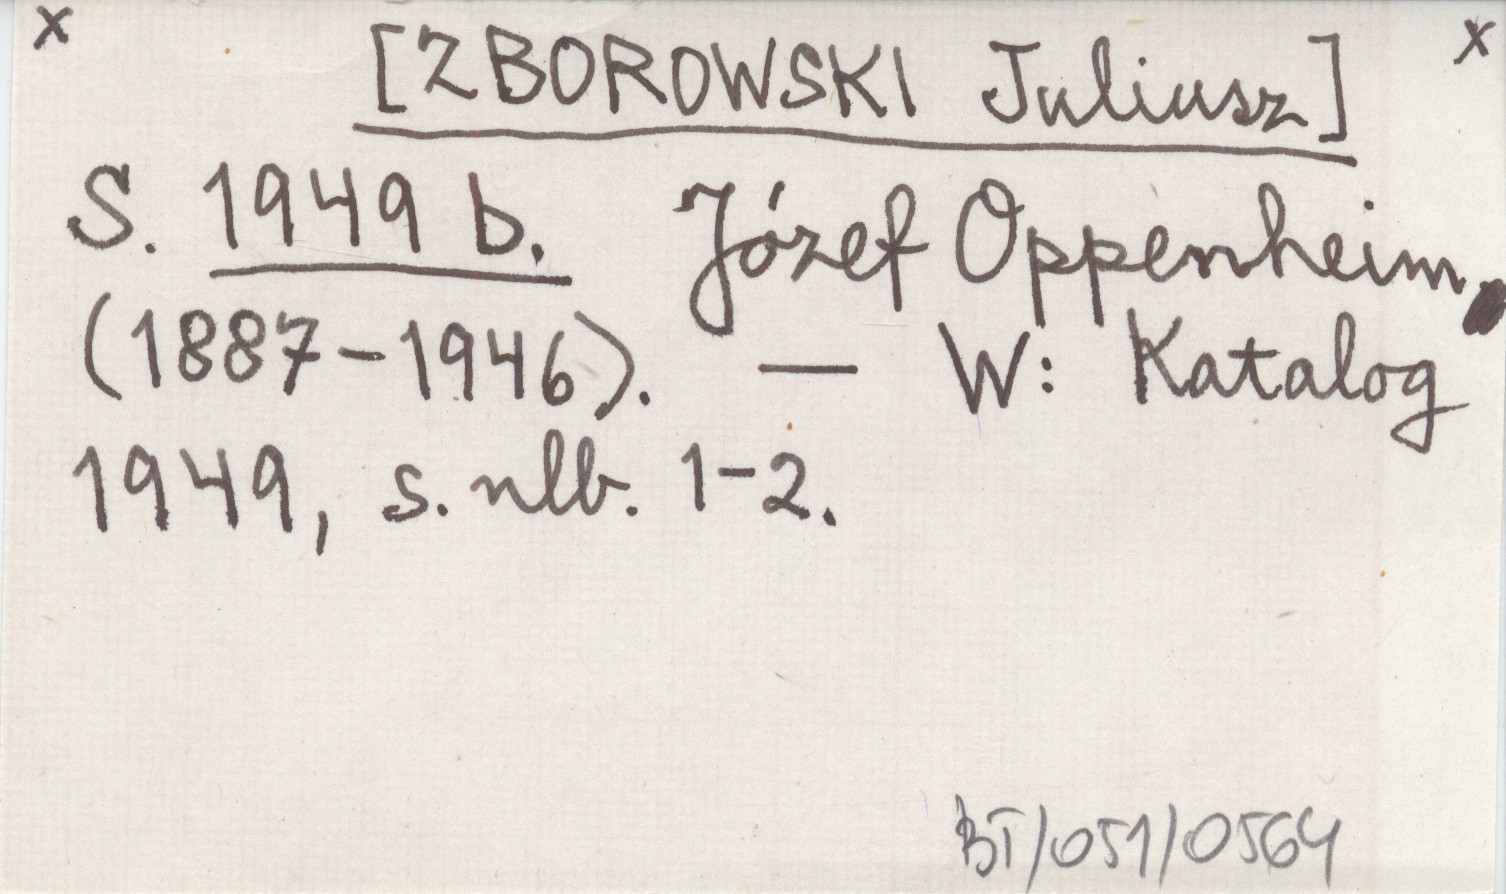 x [ZBOROWSKI Juliusz] x
S. 1949 b. Józef Oppenheim
(1887-1946). — W: Katalog
1949, s. nlb. 1-2.
BT/051/0564